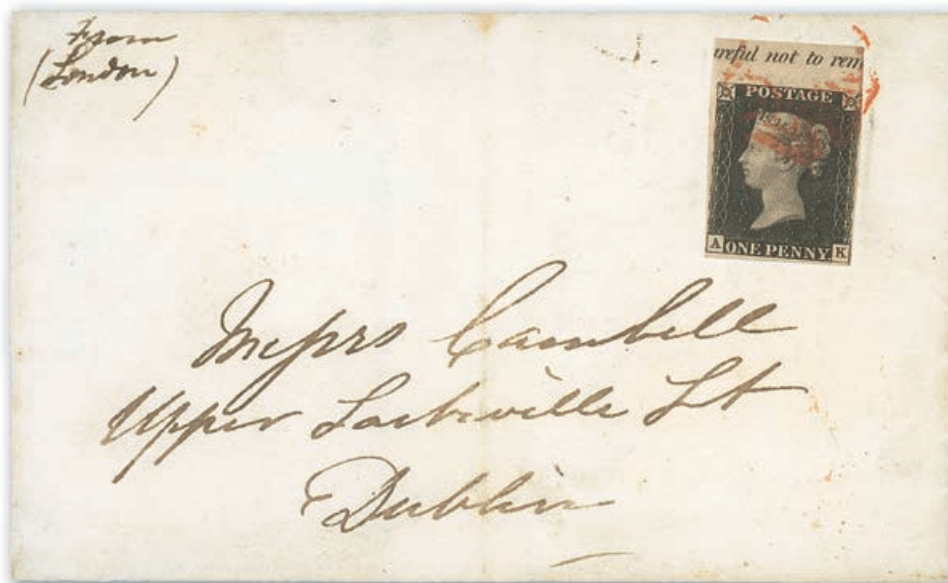 From
(London)
areful not to rem
POSTAGE
A ONE PENNY K
Messrs Cambell
Upper Sackville St
Dublin